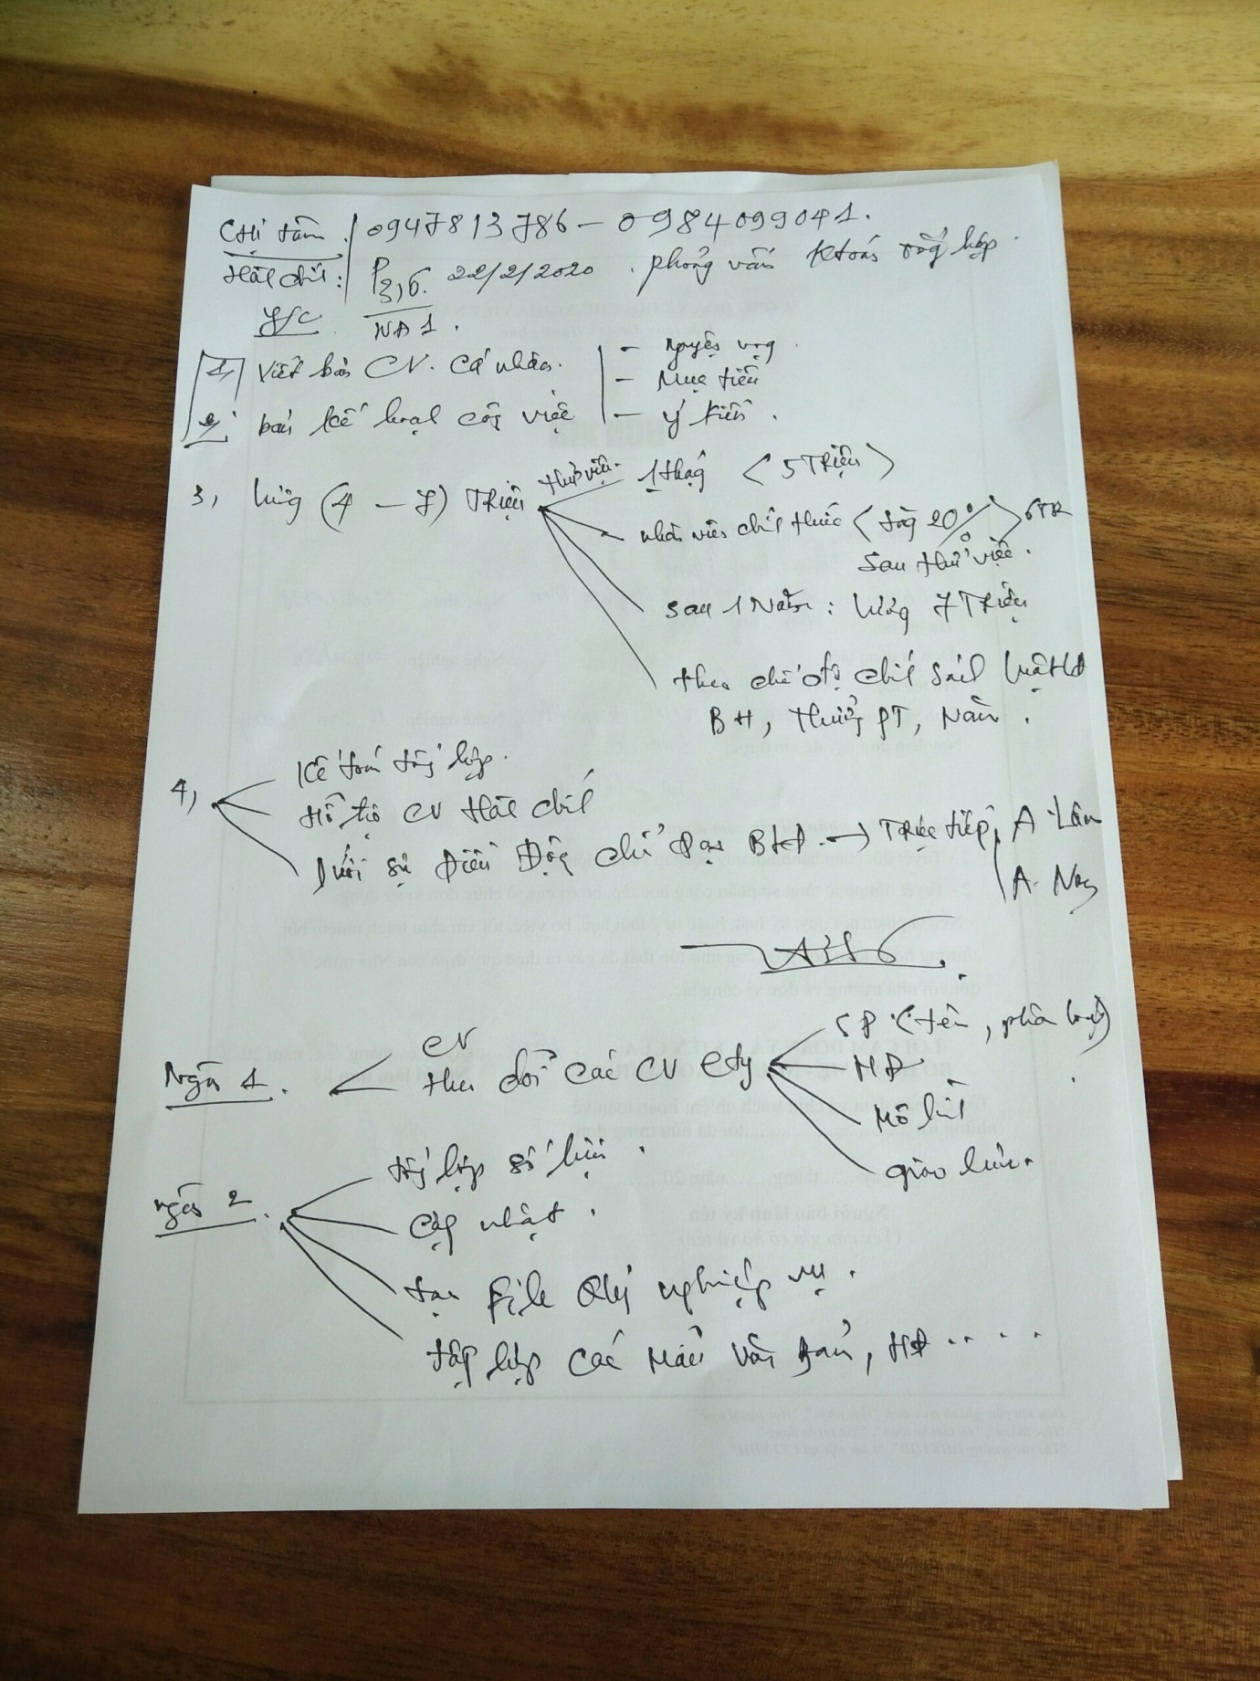 Chị Tâm. 0947813786 – 0984099041.
Hành chính: P3,6. 22/2/2020. phỏng vấn Ktoán tổng hợp.
Y/C NĐ1.
1, Viết bản CV. Cá nhân. – nguyện vọng.
– Mục tiêu
2, bản kế hoạch công việc – ý kiến.
3, lương (4 – 7) Triệu thử việc. 1 tháng < 5 Triệu >
nhân viên chính thức < tăng 20% > 6TR
sau thử việc.
sau 1 Năm: lương 7 Triệu
theo chế độ chính sách luật LĐ
BH, thưởng PT, Năm.
4, Kế toán tổng hợp.
Hỗ trợ CV Hành chính
Dưới sự Điều Động chỉ đạo BLĐ. → Trực tiếp, A Lâm
A.
CV
Ngày 1. theo dõi các CV Cty
SP (tên, phân loại)
NĐ
Mô hình
giao lưu.
ngày 2. tổng hợp số liệu.
Cập nhật.
tạo File Qlý nghiệp vụ.
tập hợp các Mẫu Văn Bản, HĐ ....